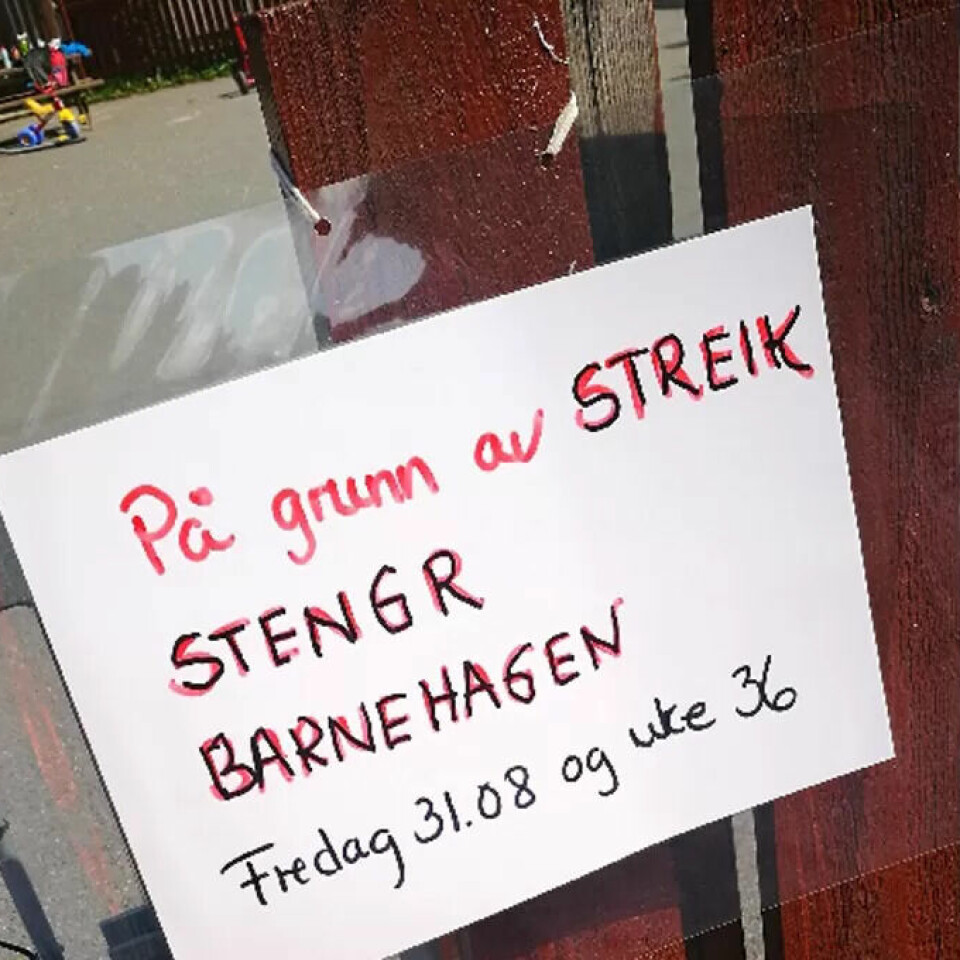 På grunn av STREIK
STENGR
BARNEHAGEN
Fredag 31.08 og uke 36